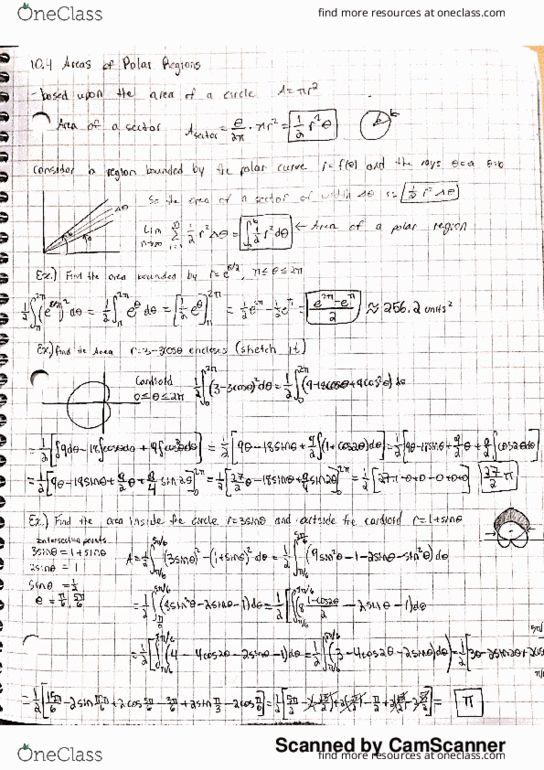 OneClass
find more resources at oneclass.com
10.4 Areas of Polar Regions
- based upon the area of a circle A = πr²
Area of a sector A_sector = θ/2π · πr² = 1/2 r²θ
Consider a region bounded by the polar curve r = f(θ) and the rays θ=a θ=b
So the area of a sector of width Δθ is 1/2 r² Δθ
Lim n→∞ Σ i=1 n 1/2 r² Δθ = ∫ 1/2 r² dθ ← Area of a polar region
Ex.) Find the area bounded by r = e^θ/2, π ≤ θ ≤ 2π
1/2 ∫π 2π (e^θ/2)² dθ = 1/2 ∫π 2π e^θ dθ = [1/2 e^θ]π 2π = 1/2 e^2π - 1/2 e^π = (e^2π - e^π)/2 ≈ 256.2 units²
Ex.) Find the Area r = 3-3cosθ encloses (sketch it)
Cardioid 1/2 ∫0 2π (3-3cosθ)² dθ = 1/2 ∫0 2π (9-18cosθ+9cos²θ) dθ
0 ≤ θ ≤ 2π
= 1/2 [∫9dθ - 18∫cosθdθ + 9∫cos²θdθ] = 1/2 [9θ - 18sinθ + 9/2 ∫(1+cos2θ)dθ] = 1/2 [9θ - 18sinθ + 9/2 θ + 9/2 ∫cos2θdθ]
= 1/2 [9θ - 18sinθ + 9/2 θ + 9/4 sin2θ]0 2π = 1/2 [27/2 θ - 18sinθ + 9/4 sin2θ]0 2π = 1/2 [27π - 0 + 0 - 0 + 0 + 0] 27/2 π
Ex.) Find the area inside the circle r = 3sinθ and outside the cardioid r = 1+sinθ
intersecting points
3sinθ = 1+sinθ
2sinθ = 1
sinθ = 1/2
θ = π/6, 5π/6
A = 1/2 ∫π/6 5π/6 (3sinθ)² - (1+sinθ)² dθ = 1/2 ∫π/6 5π/6 (9sin²θ - 1 - 2sinθ - sin²θ) dθ
= 1/2 ∫π/6 5π/6 (8sin²θ - 2sinθ - 1) dθ = 1/2 ∫π/6 5π/6 (8 (1-cos2θ)/2 - 2sinθ - 1) dθ
= 1/2 ∫π/6 5π/6 (4 - 4cos2θ - 2sinθ - 1) dθ = 1/2 ∫π/6 5π/6 (3 - 4cos2θ - 2sinθ) dθ = 1/2 [3θ - 2sin2θ + 2cos
= 1/2 [15π/6 - 2sin + 2cos 5π/6 - 3π/6 + 2sin π/3 - 2cos π/6] = 1/2 = π
Scanned by CamScanner
OneClass
find more resources at oneclass.com